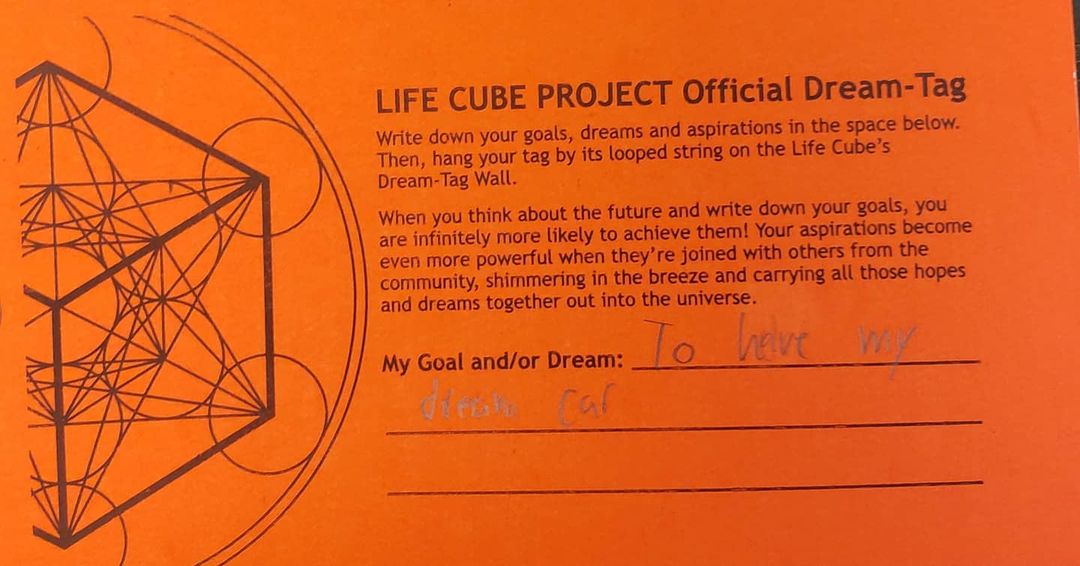 LIFE CUBE PROJECT Official Dream-Tag
Write down your goals, dreams and aspirations in the space below.
Then, hang your tag by its looped string on the Life Cube's
Dream-Tag Wall.
When you think about the future and write down your goals, you
are infinitely more likely to achieve them! Your aspirations become
even more powerful when they're joined with others from the
community, shimmering in the breeze and carrying all those hopes
and dreams together out into the universe.
My Goal and/or Dream: To have my
dream car